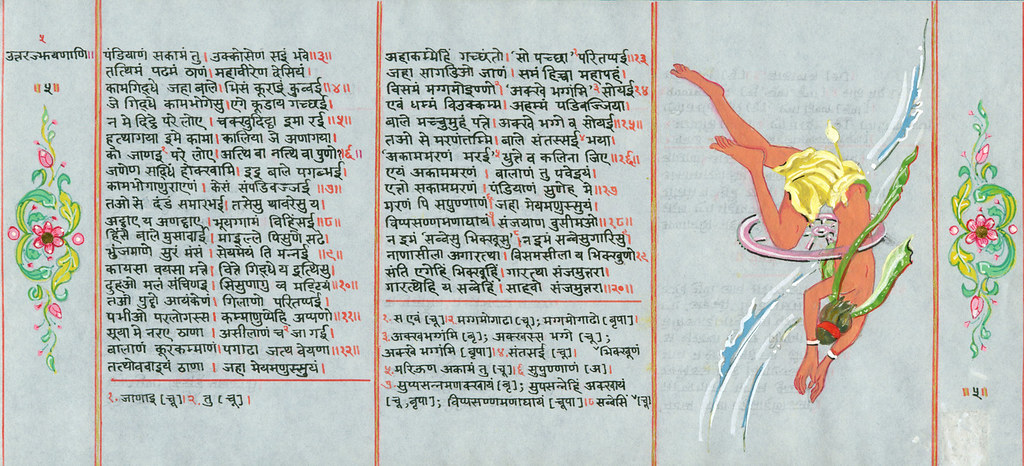 ५
उत्तरज्झयणाणि॥
॥५॥
पंडियाणं सकामं तु। उक्कोसेण सइं भवे॥३॥
तत्थिमं पढमं ठाणं। महावीरेण देसियं।
कामगिद्धे जहा बाले। भिसं कूराइं कुव्वई॥४॥
जे गिद्धे कामभोगेसु। एगे कूडाय गच्छई।
न मे दिट्ठे परे लोए। चक्खुदिट्ठा इमा रई॥५॥
हत्थागया इमे कामा। कालिया जे अणागया।
को जाणइ१ परे लोए। अत्थि वा नत्थि वा पुणो॥६॥
जणेण सद्धिं होक्खामि। इइ बाले पगब्भई।
कामभोगाणुराएणं। केसं संपडिवज्जई॥७॥
तओ से दंडं समारभई। तसेसु थावरेसु य।
अट्ठाए य अणट्ठाए। भूयग्गामं विहिंसई॥८॥
हिंसे बाले मुसावाई। माइल्ले पिसुणे सढे।
भुंजमाणे सुरं मंसं। सेयमेयं ति मन्नई॥९॥
कायसा वयसा मत्ते। वित्ते गिद्धे य इत्थिसु।
दुहओ मलं संचिणइ। सिसुणागु व्व मट्टियं॥१०॥
तओ पुट्ठो आयंकेणं। गिलाणो परितप्पई।
पभीओ परलोगस्स। कम्माणुप्पेहि अप्पणो॥११॥
सुया मे नरए ठाणा। असीलाणं च२ जा गई।
बालाणं कूरकम्माणं। पगाढा जत्थ वेयणा॥१२॥
तत्थोववाइयं ठाणं। जहा मेयमणुस्सुयं।
१. जाणाइ (चू)। २. तु (चू)।
अहाकम्मेहिं गच्छंतो। सो पच्छा परितप्पई॥१३
जहा सागडिओ जाणं। समं हिच्चा महापहं।
विसमं मग्गमोइण्णो। अक्खे भग्गंमि सोयई॥१४
एवं धम्मं विउक्कम्म। अहम्मं पडिवज्जिया।
बाले मच्चुमुहं पत्ते। अक्खे भग्गे व सोयई॥१५॥
तओ से मरणंतम्मि। बाले संतस्सई भया।
अकाममरणं मरई। धुत्ते व कलिना जिए॥१६॥
एयं अकाममरणं। बालाणं तु पवेइयं।
एत्तो सकाममरणं। पंडियाणं सुणेह मे॥१७
मरणं पि सपुण्णाणं। जहा मेयमणुस्सुयं।
विप्पसण्णमणाघायं। संजयाण वुसीमओ॥१८॥
न इमं सव्वेसु भिक्खूसु। न इमं सव्वेसुगारिसु।
नाणासीला अगारत्था। विसमसीला य भिक्खुणो॥१९
संति एगेहिं भिक्खूहिं। गारत्था संजमुत्तरा।
गारत्थेहि य सव्वेहिं। साहवो संजमुत्तरा॥२०॥
१. स एवं (चू); २ मग्गमोगाढो (चू); मग्गमोगाढो (बृपा)।
३. अक्खभग्गंमि (बृ); अक्खस्स भग्गे (चू);
अक्खे भग्गंमि (बृपा)। ४. संतसई (चू)।
५. मरिऊण अकामं तु (चू)। ६. सुपुण्णाणं (अ)।
७. सुप्पसन्नमणक्खायं (बृ); सुपसन्नेहिं अक्खायं
(चू, बृपा); विप्पसण्णमणाघायं (चूपा)। ८. सव्वेसिं
भिक्खूणं (चू)
॥५॥